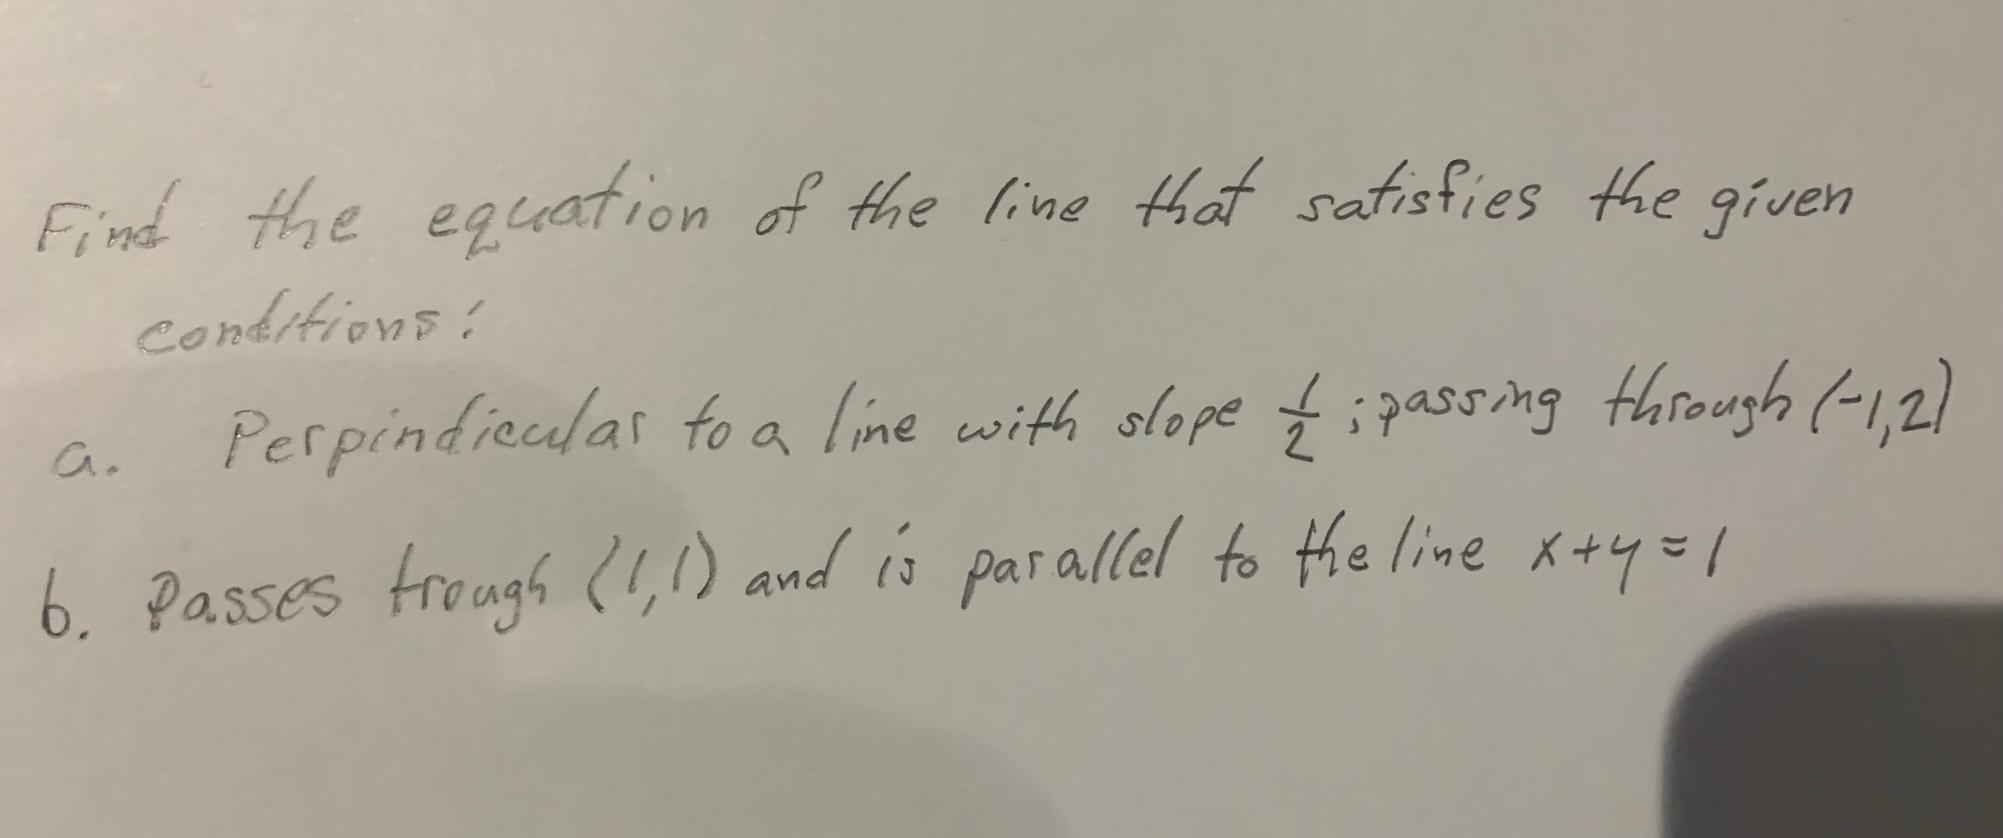 Find the equation of the line that satisfies the given
conditions:
a. Perpindicular to a line with slope 1/2; passing through (-1,2)
b. Passes trough (1,1) and is parallel to the line x+y=1